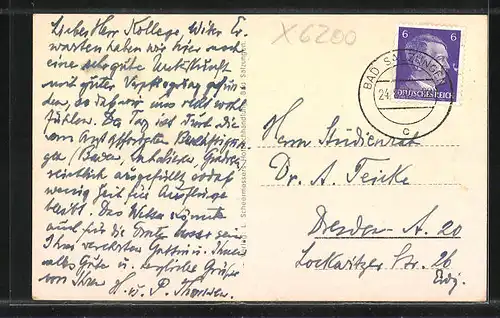 Lieber Herr Kollege, Wider Er-
warten haben wir hier noch
eine sehr gute Unterkunft
mit guter Verpflegung gefun-
den, so daß wir uns recht wohl
fühlen. Der Tag ist durch die
vom Arzt
gen (Bäder, Inhalieren,
ausgefüllt, sodaß
wenig Zeit für Ausflüge
bleibt. Das Wetter könnte
auch für die Ernte besser sein
Ihrer verehrten Gattin u. Ihnen
alles Gute u. herzliche Grüße
von Ihren H. u. P.
X6280
6 6
DEUTSCHES REICH
BAD SALZUNGEN
24.
c
Herrn Studienrat
Dr. A. Teicke
Dresden-A. 20
Lockwitzer Str. 26
Bad Salzungen